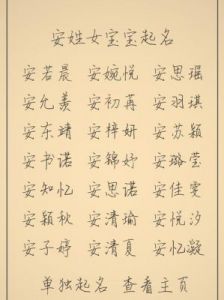 安姓女宝宝起名
安若晨 安婉悦 安思瑶
安允羡 安初苒 安羽琪
安东靖 安梓妍 安苏颖
安书诺 安锦妤 安璐莹
安知忆 安思诺 安佳雯
安颖秋 安清瑜 安悦汐
安子婷 安清夏 安忆凝
单独起名 查看主页